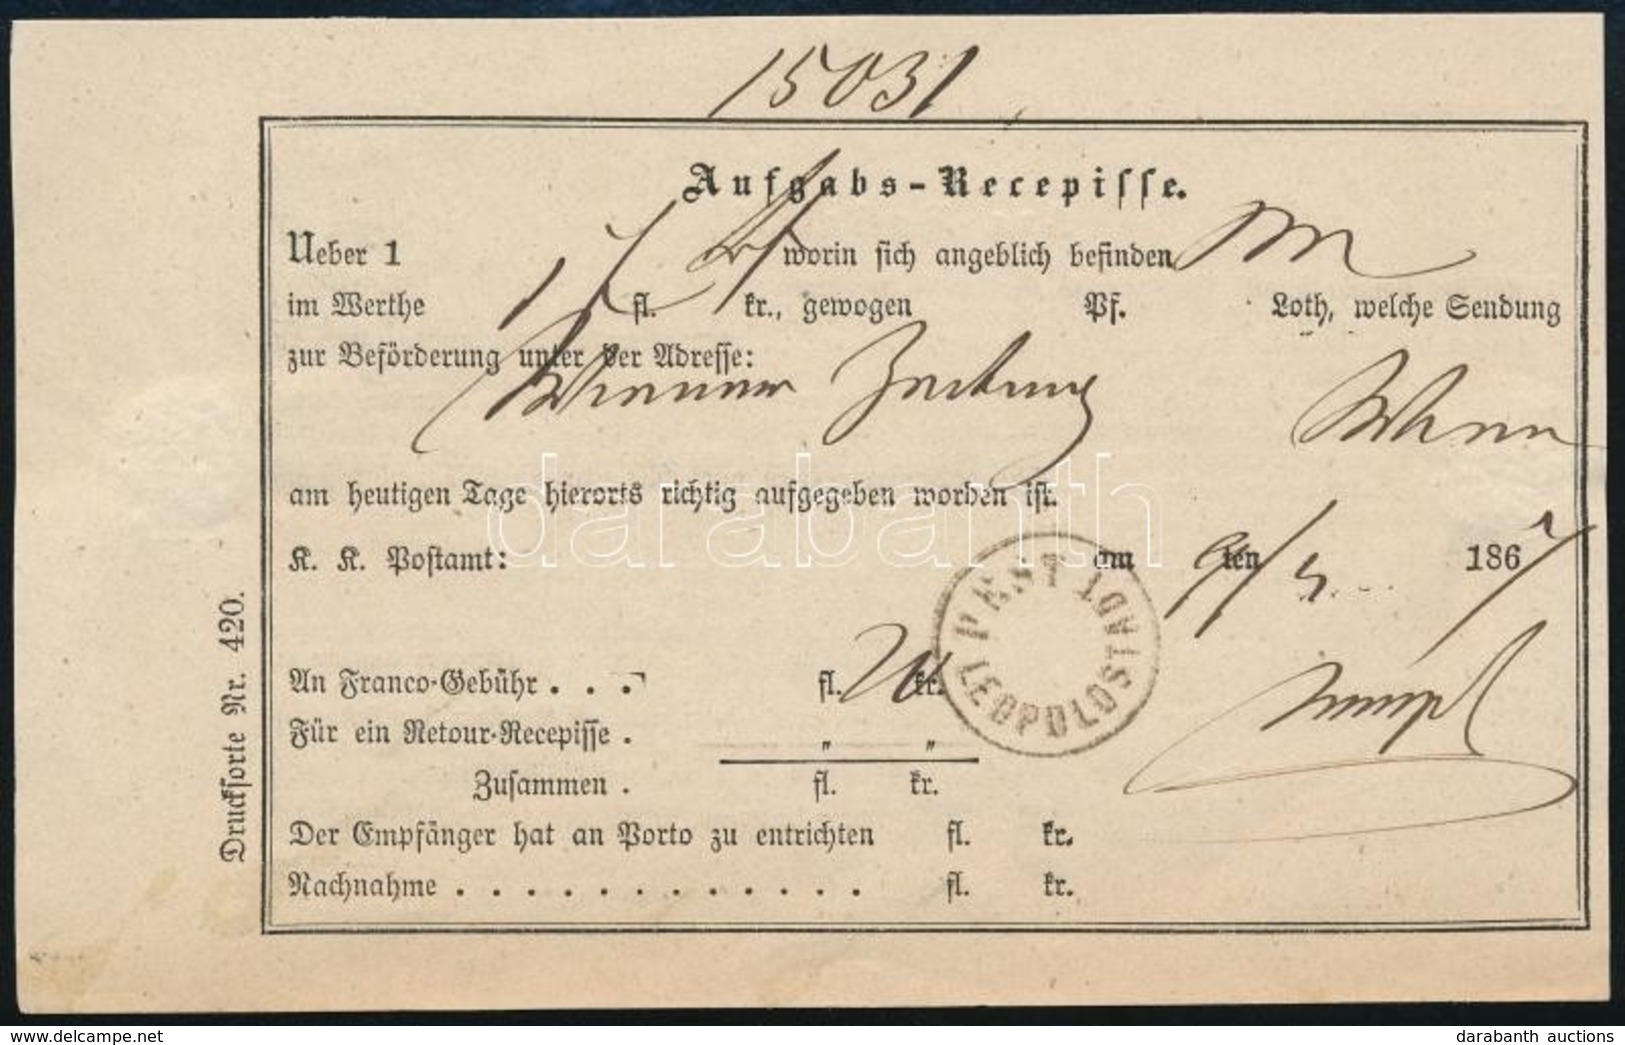 15031
Aufgabs-Recepisse.
Ueber 1 worin sich angeblich befinden
im Werthe fl. kr., gewogen Pf. Loth, welche Sendung
zur Beförderung unter der Adresse:
Wiener Zeitung Wien
am heutigen Tage hierorts richtig aufgegeben worden ist.
K. K. Postamt: am 9/5 ten 1867
PEST LEOPOLDSTADT
An Franco-Gebühr . . . fl. kr.
Für ein Retour-Recepisse . " "
Zusammen . fl. kr.
Der Empfänger hat an Porto zu entrichten fl. kr.
Nachnahme . . . . . . . . . . . . . fl. kr.
Drucksorte Nr. 420.
darabanth
www.darabanth.com
darabanth auctions